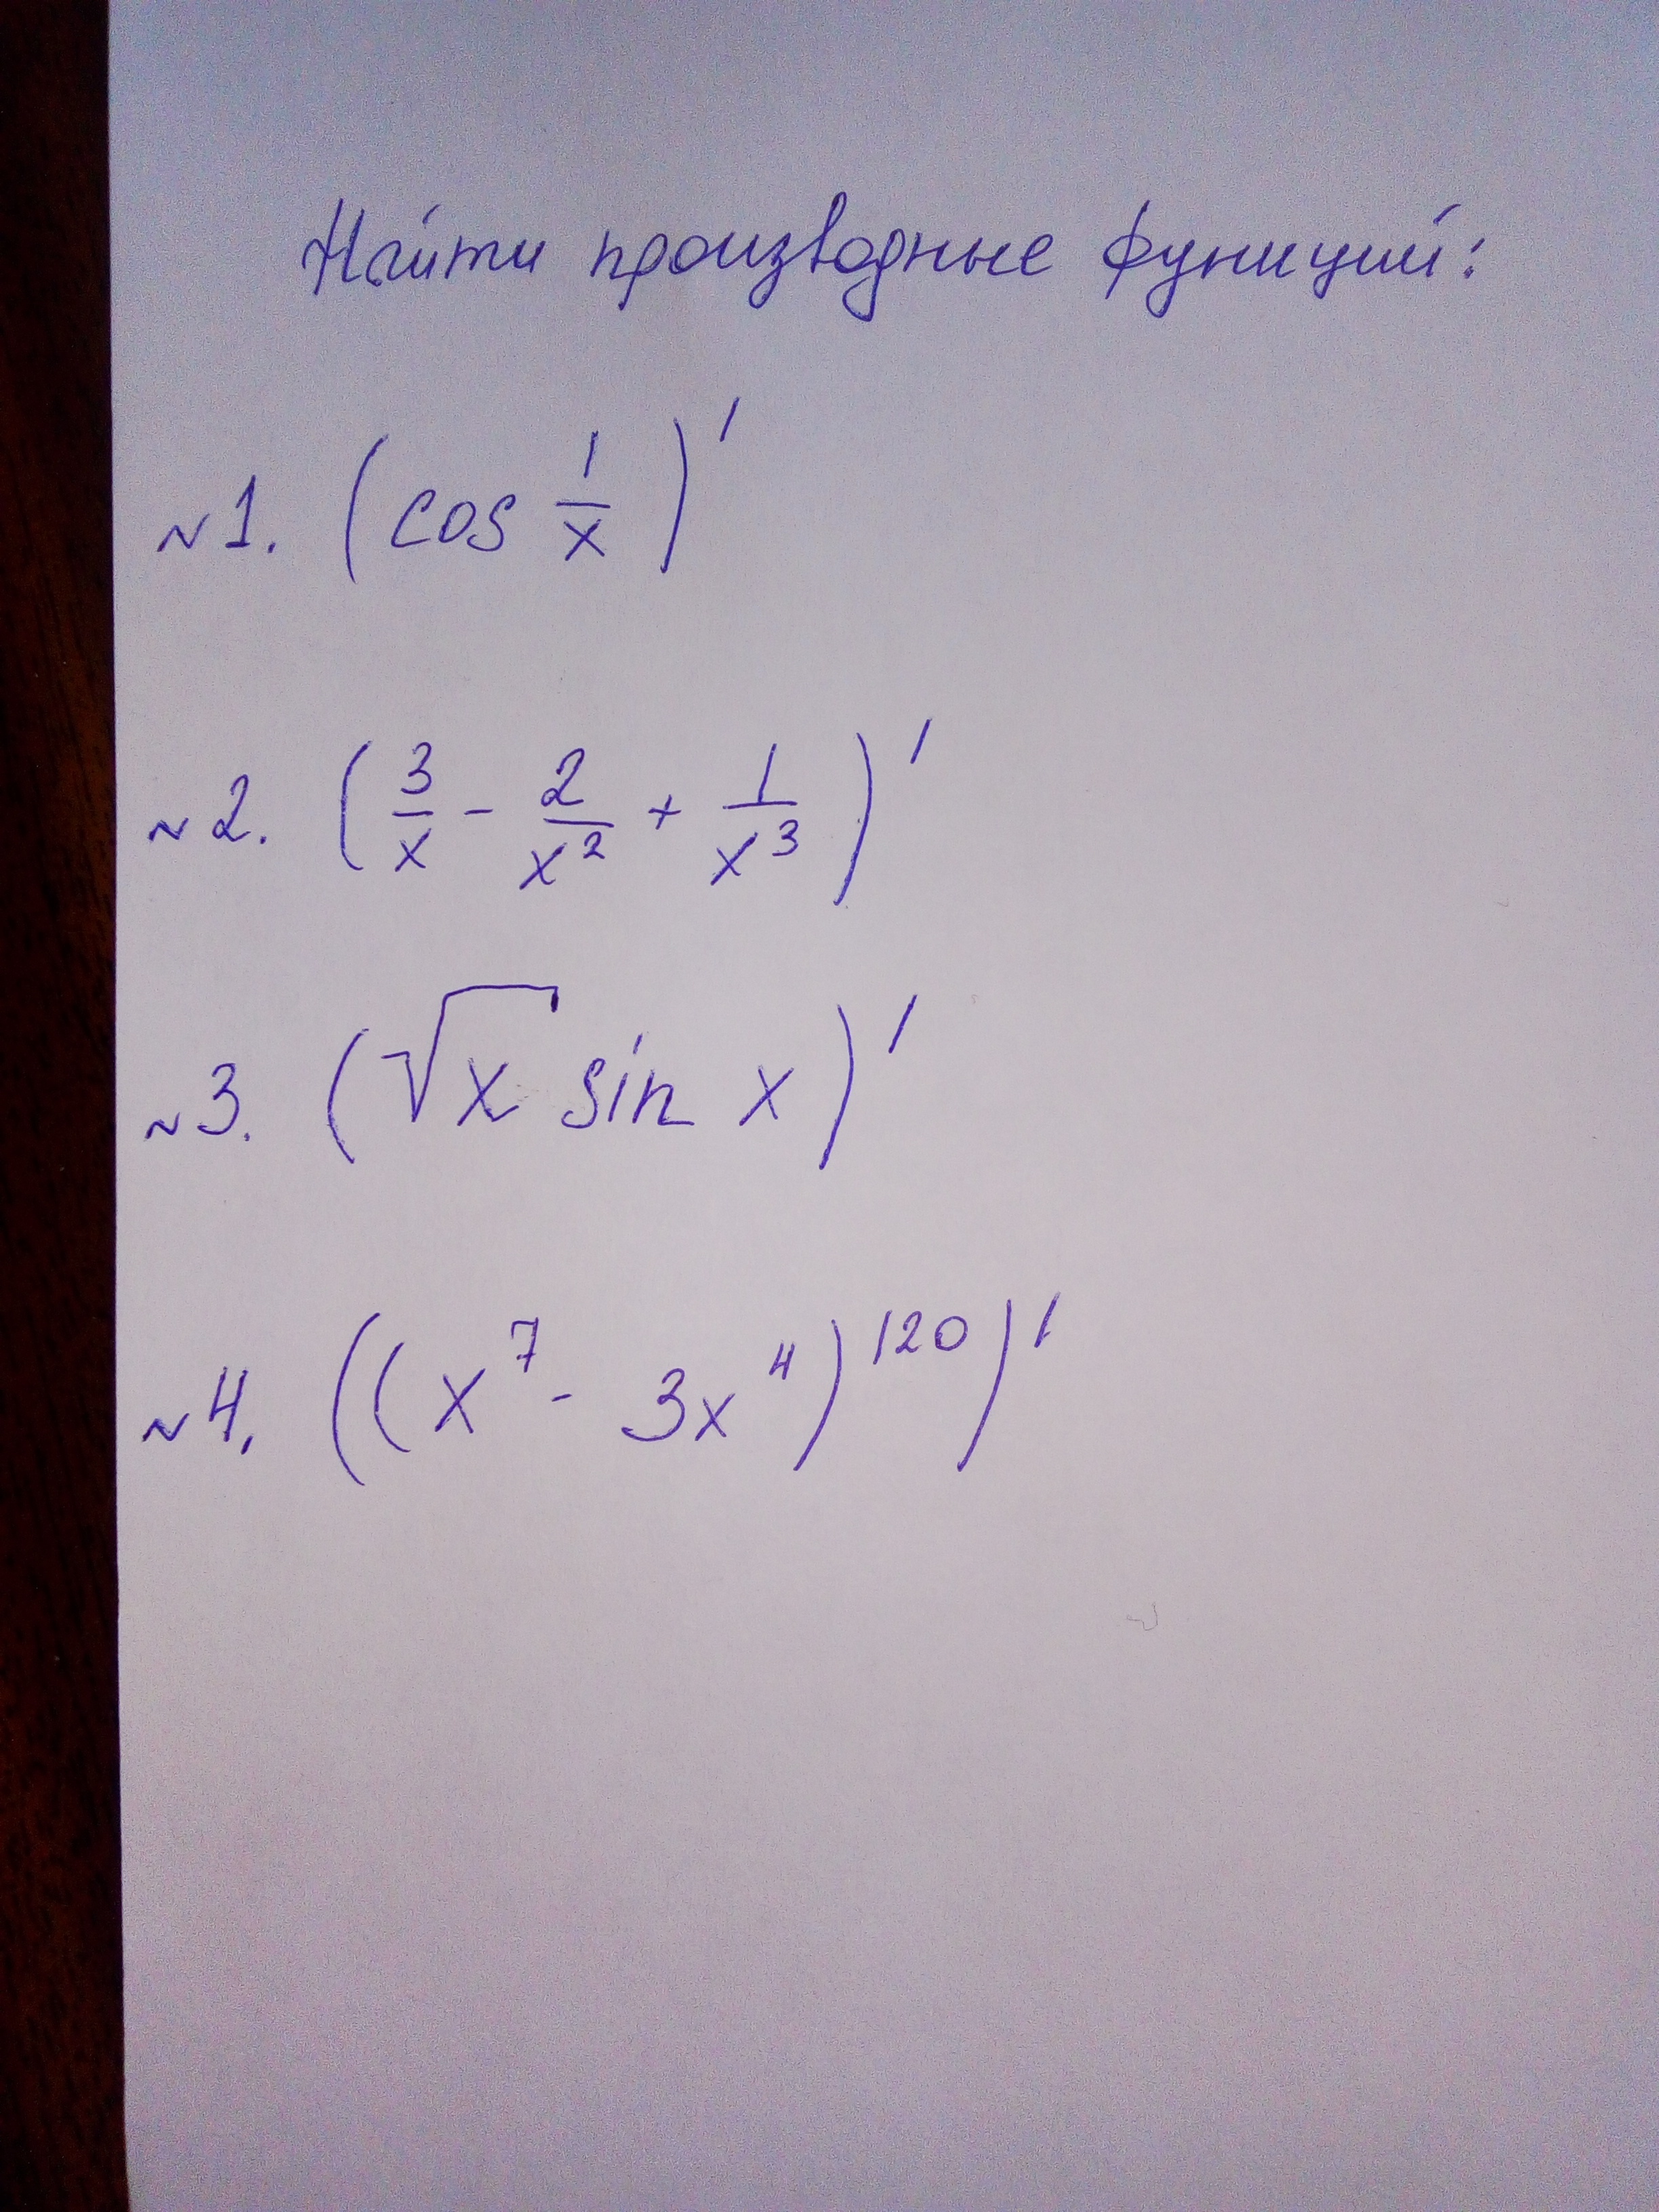 Найти производные функций:
№1. (cos 1/x)'
№2. (3/x - 2/x² + 1/x³)'
№3. (√x sin x)'
№4. ((x⁷ - 3x⁴)¹²⁰)'